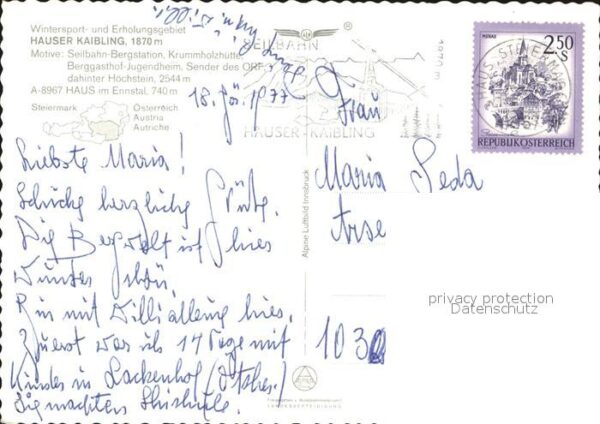 Wintersport- und Erholungsgebiet
HAUSER KAIBLING, 1870 m
Motive: Seilbahn-Bergstation, Krummholzhütte
Berggasthof-Jugendheim, Sender des ORF
dahinter Höchstein, 2544 m
A-8967 HAUS im Ennstal, 740 m
Steiermark
Österreich
Austria
Autriche
SEILBAHN
1870 m
HAUSER-KAIBLING
MURAU
2.50
S
REPUBLIK ÖSTERREICH
18. Jä. 1977
Liebste Maria!
Schicke herzliche Grüße.
Die Bergwelt ist hier
wunderschön.
Bin mit Willi allein hier.
Zuerst war ich 14 Tage mit
Kinder in Lackenhof (Ötscher)
Sie machten Skischule.
Frau
Maria Seda
Arse
103
Alpine Luftbild Innsbruck
privacy protection
Datenschutz